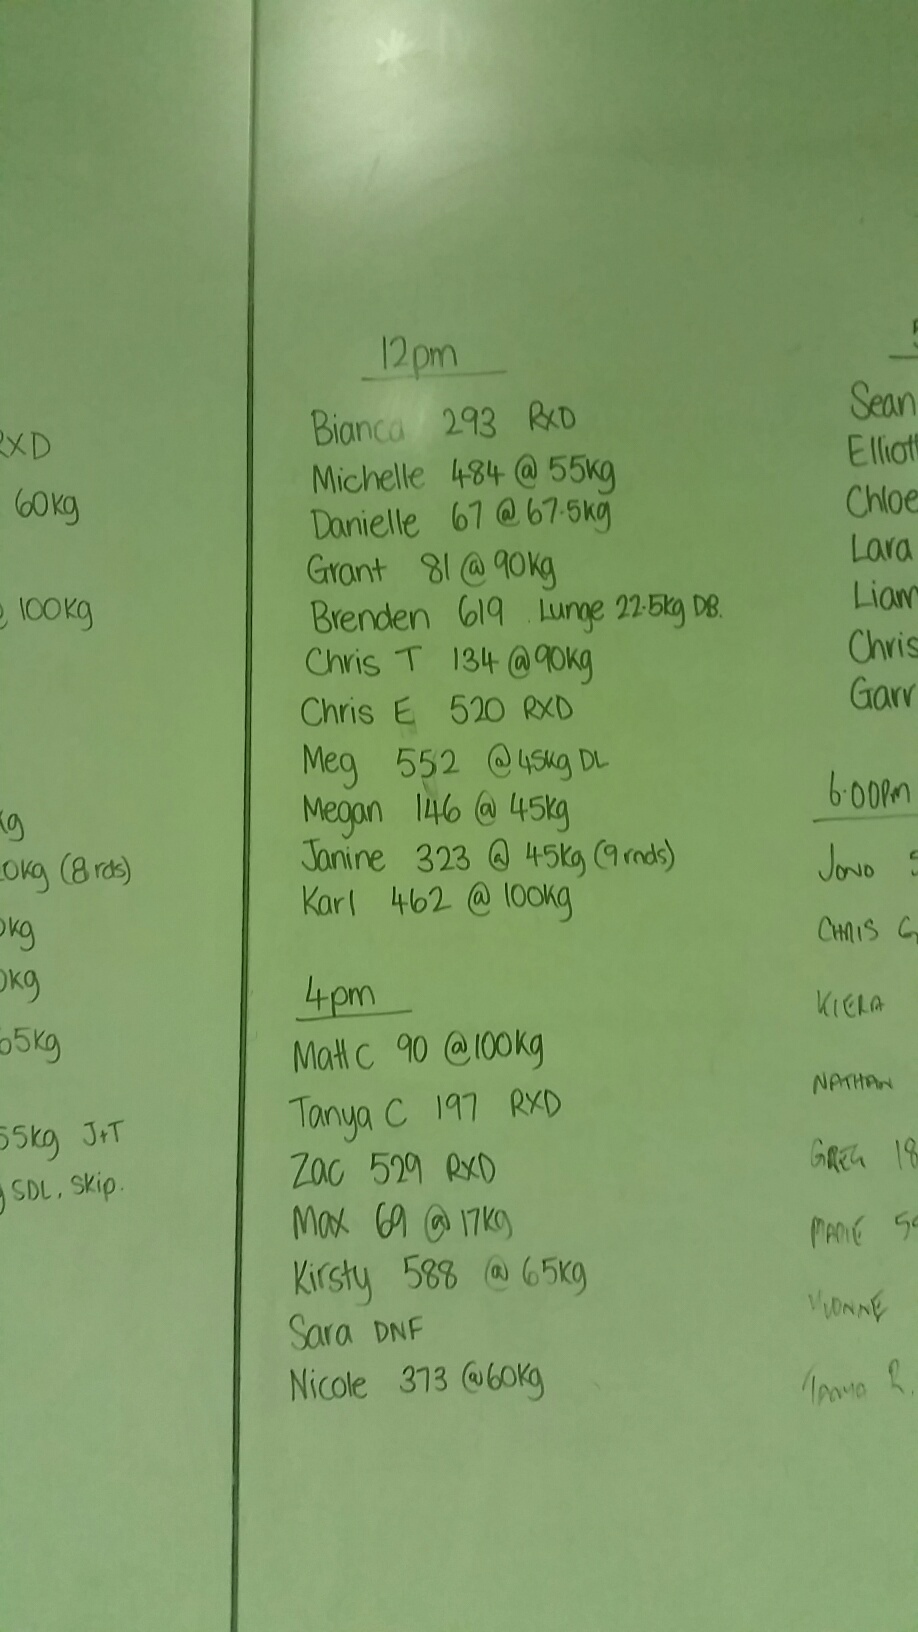 RXD
60kg
100kg
kg
0kg (8 rds)
0kg
0kg
65kg
55kg J+T
SDL, Skip.
12pm
Bianca 293 RXD
Michelle 484 @ 55kg
Danielle 67 @ 67.5kg
Grant 81 @ 90kg
Brenden 619 Lunge 22.5kg DB.
Chris T 134 @90kg
Chris E 520 RXD
Meg 552 @45kg DL
Megan 146 @ 45kg
Janine 323 @ 45kg (9 rnds)
Karl 462 @ 100kg
4pm
Matt C 90 @100kg
Tanya C 197 RXD
Zac 529 RXD
Max 69 @ 17kg
Kirsty 588 @ 65kg
Sara DNF
Nicole 373 @60kg
Sean
Elliott
Chloe
Lara
Liam
Chris
Garr
6.00pm
Jono 5
CHRIS G
KIERA
NATHAN
GREG 18
MARIE 5
YVONNE
R.